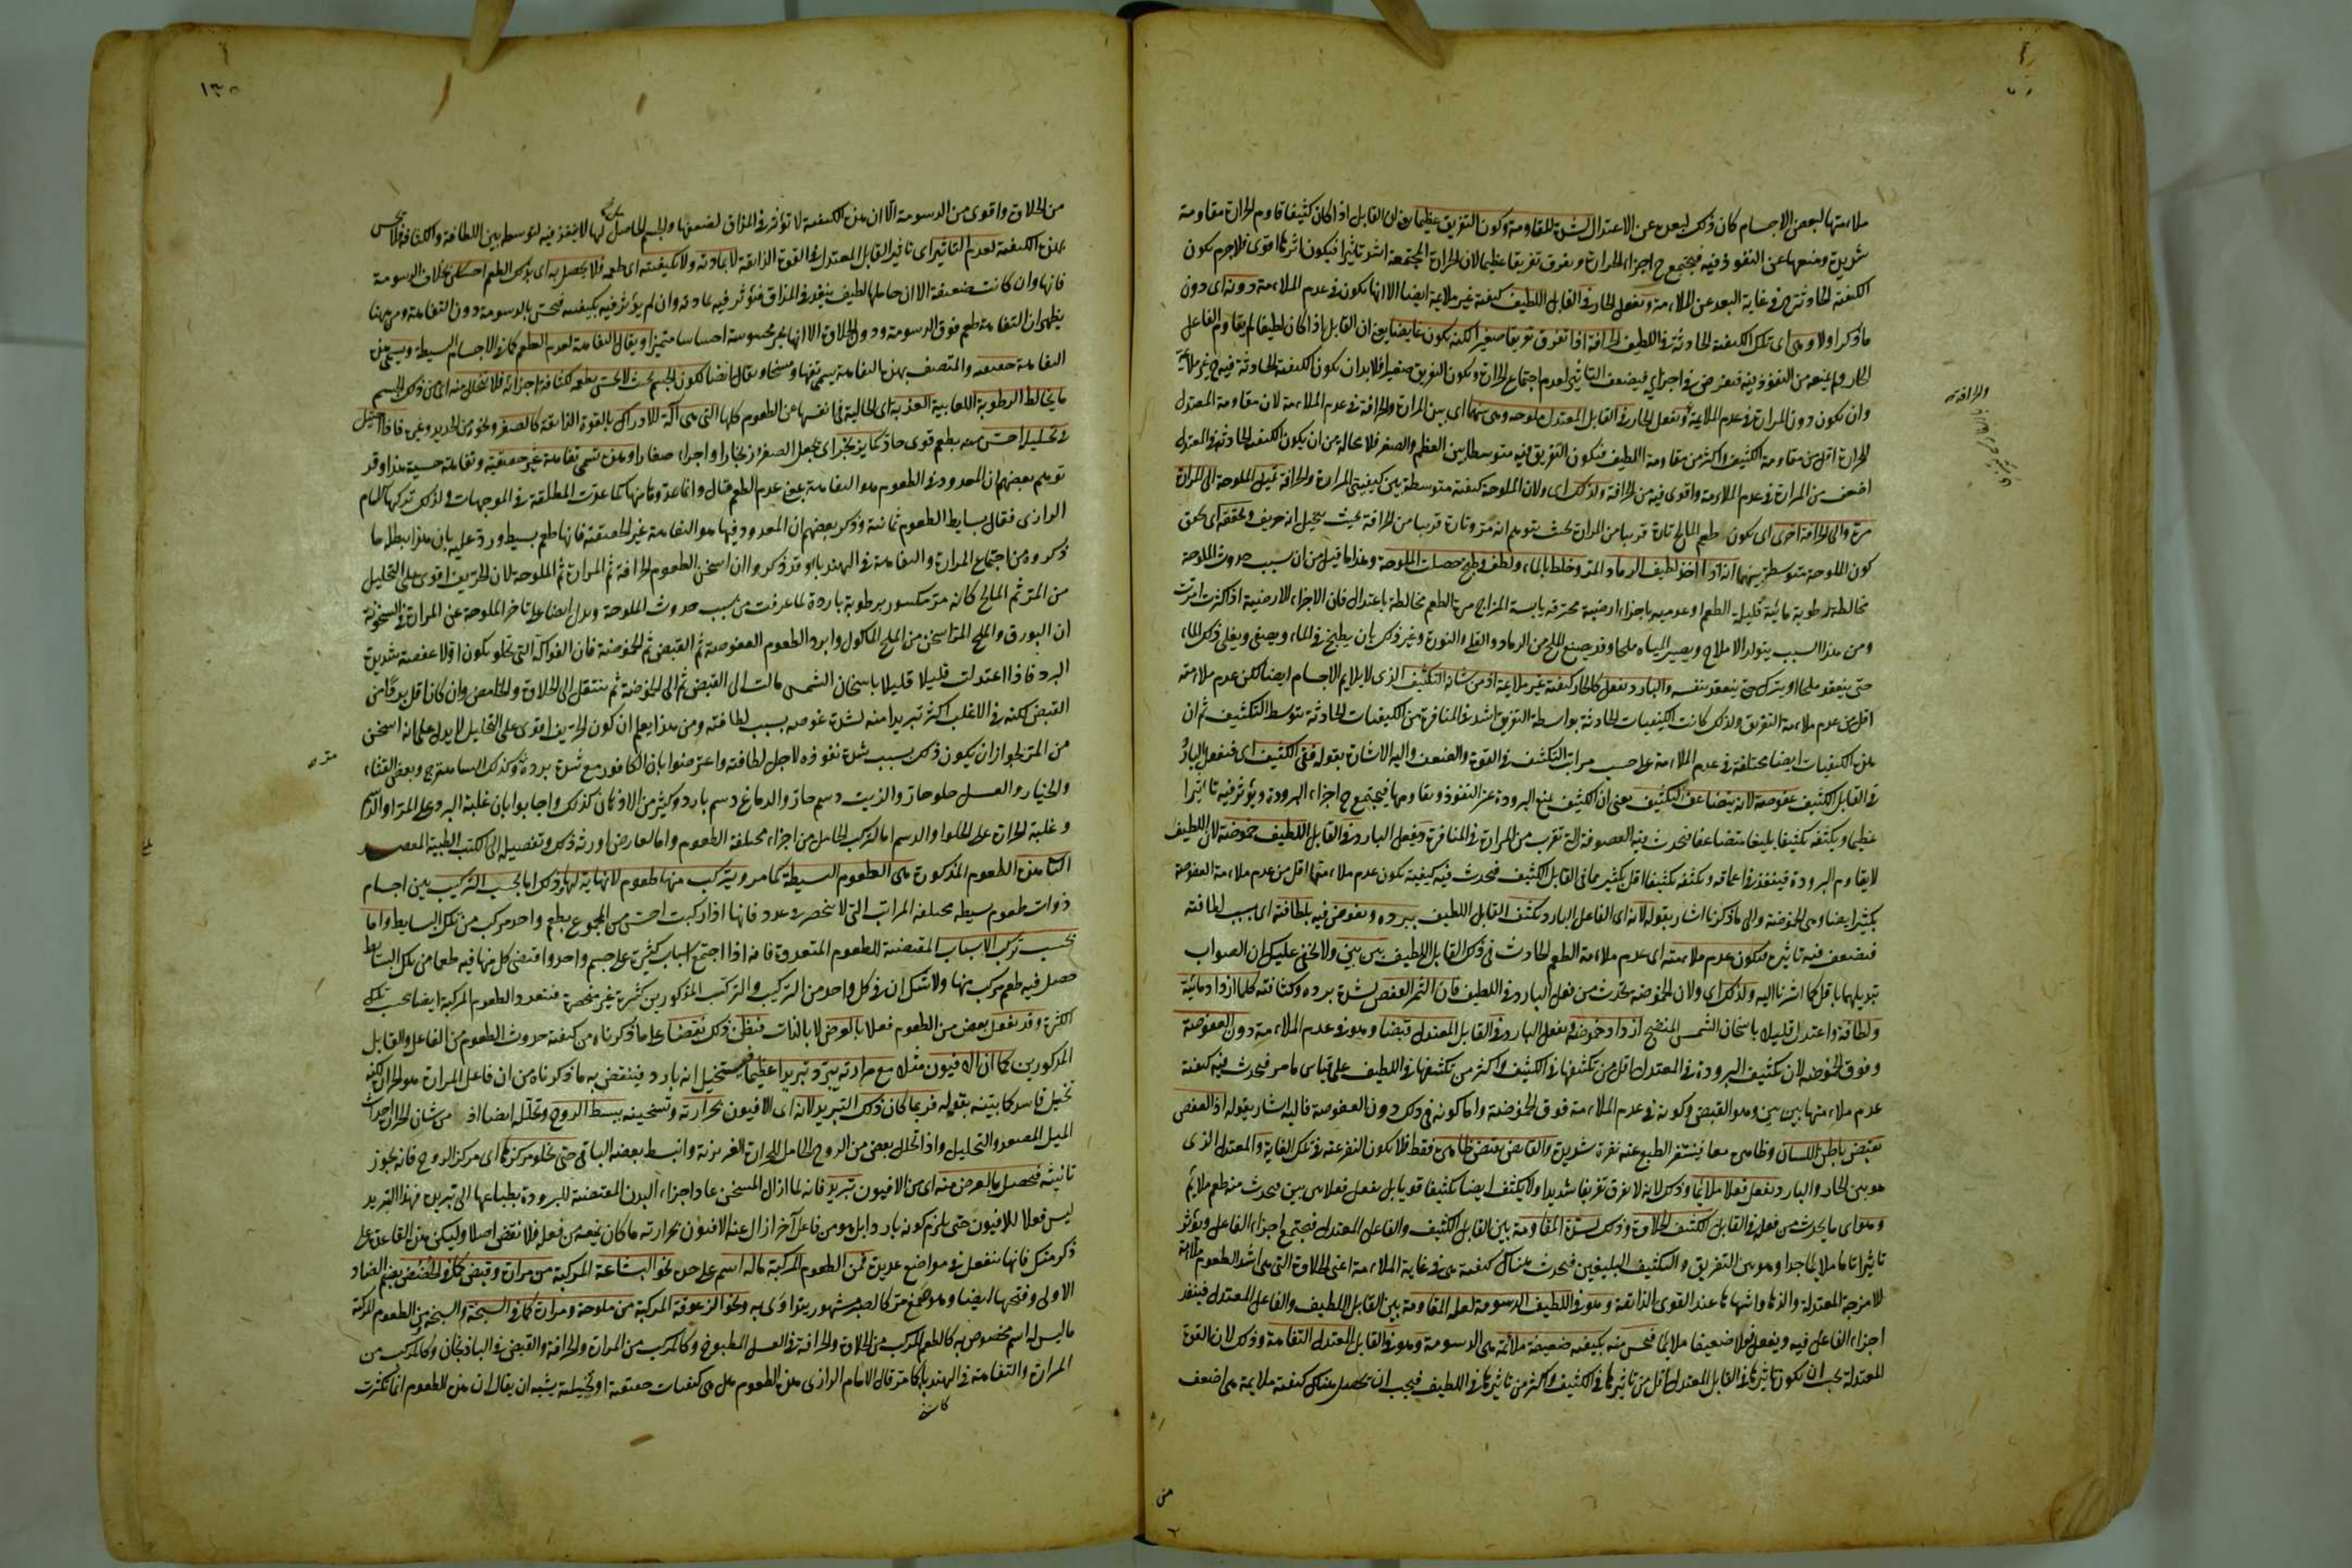 ملاءمتها لبعض الاجسام كان ذلك لبعده عن الاعتدال لشدة المقاومة وكون التفريق عظيما يعنى ان القابل اذا كان كثيفا قاوم الحرارة مقاومة
شديدة ومنعها عن النفوذ فيه فيجتمع ح اجزاء الحرارة ويفرق تفريقا عظيما لان الحرارة المجتمعة اشد تاثيرا فيكون اثرها اقوى فلا جرم يكون
الكيفية الحادثة ح فى غاية البعد عن الملاءمة وتفعل الحار فى القابل اللطيف كيفية غير ملائمة ايضا الا انها يكون فى عدم الملاءمة دونه اى دون
ما ذكر اولا وهى اى تلك الكيفية الحادثة فى اللطيف الحرافة اذا تفرق تفريقا صغيرا لكنه يكون غايصا يعنى ان القابل اذا كان لطيفا لم يقاوم الفاعل
الحار ولم يمنعه من النفوذ فيه فيغوص فى اجزائه فيضعف التاثير لعدم اجتماع الحرارة ويكون التفريق صغيرا فلابد ان يكون الكيفية الحادثة فيه ح غير ملائمة
وان يكون دون المرارة فى عدم الملائمة وتفعل الحار فى القابل المعتدل ملوحه وهى بينهما اى بين المرارة والحرافة فى عدم الملاءمة لان مقاومة المعتدل
للحرارة اقل من مقاومة الكثيف واكثر من مقاومة اللطيف فيكون التفريق فيه متوسطا بين العظم والصغر فلا محالة من ان يكون الكيفية الحادثة فى المعتدل
اضعف من المرارة فى عدم الملاءمة واقوى فيه من الحرافة ولذلك اى ولان الملوحة كيفية متوسطة بين كيفيتى المرارة والحرافة تميل الملوحة الى المرارة
مرة والى الحرافة اخرى اى يكون طعم المالح تارة قريبا من المرارة بحيث يتوهم انه مر وتارة قريبا من الحرافة بحيث يتخيل انه حريف ويحققه اى يحقق
كون الملوحة متوسطة بينهما انه اذا اخذ لطيف الرماد المر وخلط بالماء ولطف وطبخ حصلت الملوحة وهذا ما قيل من ان سبب حدوث الملوحة
مخالطة رطوبة مائية قليلة الطعم او عديمته باجزاء ارضية محترقه يابسة المزاج مرة الطعم مخالطة باعتدال فان الاجزاء الارضية اذا كثرت امرت
ومن هذا السبب يتولد الاملاح ويصير المياه ملحا وقد يصنع الملح من الرماد والقلى والنورة وغير ذلك بان يطبخ فى الماء ويصفى ويغلى ذلك الماء
حتى ينعقد ملحا او يترك حتى ينعقد بنفسه والبارد يفعل كالحار كيفية غير ملائمة اذ من شانه التكثيف الذى لا يلايم الاجسام ايضا لكن عدم ملاءمته
اقل من عدم ملاءمة التفريق ولذلك كانت الكيفيات الحادثة بواسطة التفريق اشد فى المنافرة من الكيفيات الحادثة بتوسط التكثيف ثم ان
هذه الكيفيات ايضا مختلفة فى عدم الملاءمة على حسب مراتب التكثف فى القوة والضعف واليه الاشارة بقوله ففى الكثيف اى فيفعل البارد
فى القابل الكثيف عفوصة لانه يتضاعف التكثيف يعنى ان الكثيف يمنع البرودة عن النفوذ ويقاومها فيجتمع ح اجزاء البرودة ويؤثر فيه تاثيرا
عظيما ويكثفه تكثيفا بليغا متضاعفا فيحدث فيه العفوصة التى تقرب من المرارة فى المنافرة ويفعل البارد فى القابل اللطيف حموضة لان اللطيف
لا يقاوم البرودة فينفذ فى اعماقه ويكثفه تكثيفا اقل بكثير مما فى القابل الكثيف فيحدث فيه كيفية يكون عدم ملاءمتها اقل من عدم ملاءمة العفوصة
بكثير ايضا وهى الحموضة والى ما ذكرنا اشار بقوله لانه اى الفاعل البارد يكثف القابل اللطيف ببرده ويغوص فيه بلطافته اى بسبب لطافته
فيضعف فيه تاثيره فيكون عدم ملاءمته اى عدم ملاءمة الطعم الحادث فى ذلك القابل اللطيف بين بين ولا يخفى عليك ان الصواب
تبديلهما باقل كما اشرنا اليه ولذلك اى ولان الحموضة يحدث من فعل البارد فى اللطيف فان الثمر العفص لشدة برده وكثافته كلما ازداد مائية
ولطافة واعتدل قليلا باسخان الشمس المنضج ازداد حموضة ويفعل البارد فى القابل المعتدل قبضا وهو فى عدم الملاءمة دون العفوصة
وفوق الحموضة لان تكثيف البرودة فى المعتدل اقل من تكثيفها فى الكثيف واكثر من تكثيفها فى اللطيف على قياس ما مر فيحدث فيه كيفية
عدم ملاءمتها بين بين وهو القبض وكونه فى عدم الملاءمة فوق الحموضة واما كونه فى ذلك دون العفوصة فاليه اشار بقوله اذ العفص
يقبض باطن اللسان وظاهره معا فينفر الطبع عنه نفرة شديدة والقابض يقبض ظاهره فقط فلا يكون النفرة عنه فى تلك الغاية والمعتدل الذى
هو بين الحار والبارد يفعل فعلا ملائما وذلك لانه لا يفرق تفريقا شديدا ولا يكثف ايضا تكثيفا قويا بل يفعل فعلا بين بين فيحدث منه طعم ملايم
وهو اى ما يحدث من فعله فى القابل الكثيف الحلاوة وذلك لشدة المقاومة بين القابل الكثيف والفاعل المعتدل فيجتمع اجزاء الفاعل ويؤثر
تاثيرا تاما ملايما جدا وهو بين التفريق والتكثيف البليغين فيحدث هناك كيفية هى فى غاية الملاءمة اعنى الحلاوة التى هى اشد الطعوم ملاءمة
للامزجة المعتدلة والذها واشهاها عند القوى الذائقة وهو فى اللطيف الدسومة لقلة المقاومة بين القابل اللطيف والفاعل المعتدل فينفذ
اجزاء الفاعل فيه ويفعل فعلا ضعيفا ملايما فيحس منه بكيفية ضعيفة ملائمة هى الدسومة وهو فى القابل المعتدل التفاهة وذلك لان القوة
المعتدلة يجب ان يكون تاثيرها فى القابل المعتدل اقل من تاثيرها فى الكثيف واكثر من تاثيرها فى اللطيف فيجب ان يحصل هناك كيفية ملايمة هى اضعف
من
١٣٥
من الحلاوة واقوى من الدسومة الا ان هذه الكيفية لا تؤثر فى المذاق لضعفها والجسم الحامل لها لا ينفذ فيه لتوسطه بين اللطافة والكثافة فلا يحس
بهذه الكيفية لعدم التاثير اى تاثير القابل المعتدل فى القوة الذائقة لا بمادته ولا بكيفيته اى طعمه فلا يحصل به اى بذلك الطعم احساس بخلاف الدسومة
فانها وان كانت ضعيفة الا ان حاملها لطيف ينفذ فى المذاق فيؤثر فيه بمادته وان لم يؤثر فيه بكيفيته فيحس بالدسومة دون التفاهة ومن ههنا
يظهر ان التفاهة طعم فوق الدسومة ودون الحلاوة الا انها غير محسوسة احساسا متميزا ويقال التفاهة لعدم الطعم كما فى الاجسام البسيطة ويسمى هذه
التفاهة حقيقية والمتصف بهذه التفاهة يسمى تفها ومسخا ويقال ايضا لكون الجسم بحيث لا يحس بطعمه لكثافة اجزائه فلا يتحلل منه اى من ذلك الجسم
ما يخالط الرطوبة اللعابية العذبة اى الخالية فى نفسها عن الطعوم كلها التى هى آلة للادراك بالقوة الذائقة كالصفر ونحوه من الحديد وغيره فاذا احتيل
فى تحليله احس منه بطعم قوى حاد كما يزنجر اى يجعل الصفر زنجارا واجزاء صغارا وهذه تسمى تفاهة غير حقيقية وتفاهة حسية هذا وقد
توهم بعضهم ان المعدود فى الطعوم هو التفاهة بمعنى عدم الطعم قال وانما عدوها منها كما عدت المطلقة فى الموجهات ولذلك تركها الامام
الرازى فقال بسايط الطعوم ثمانية وذكر بعضهم ان المعدود فيها هو التفاهة غير الحقيقية فانها طعم بسيط ورد عليه بان هذا يبطله ما
ذكروه من اجتماع المرارة والتفاهة فى الهندبا او قد ذكروا ان اسخن الطعوم الحرافة ثم المرارة ثم الملوحة لان الحريف اقوى على التحليل
من المر ثم المالح كانه مر مكسور برطوبة باردة لما عرفت من سبب حدوث الملوحة ويدل ايضا على تاخر الملوحة عن المرارة فى السخونة
ان البورق والملح المر اسخن من الملح الماكول وابرد الطعوم العفوصة ثم القبض ثم الحموضة فان الفواكه التى تحلو يكون اولا عفصة شديدة
البرد فاذا اعتدلت قليلا قليلا باسخان الشمس مالت الى القبض ثم الى الحموضة ثم ينتقل الى الحلاوة والحامض وان كان اقل بردا من
القبض لكنه فى الاغلب اكثر تبريدا منه لشدة غوصه بسبب لطافته ومن هذا يعلم ان كون الحريف اقوى على التحليل لا يدل على انه اسخن
من المر لجواز ان يكون ذلك بسبب شدة نفوذه لاجل لطافته واعترضوا بان الكافور مع شدة برده مر وكذلك الساهترج وبعض القثاء
والخيار والعسل حلو حار والزيت دسم حار والدماغ دسم بارد وكثير من الادهان كذلك واجابوا بان غلبة البرد على المر او الدسم
وغلبة الحرارة على الحلو او الدسم اما لتركب الحامل من اجزاء مختلفة الطعوم واما لعارض اورثه ذلك وتفصيله الى الكتب الطبية المقصد
الثامن الطعوم المذكورة هى الطعوم البسيطة كما مر ويتركب منها طعوم لا نهاية لها وذلك اما بحسب التركيب بين اجسام
ذوات طعوم بسيطة مختلفة المراتب التى لا ينحصر فى عدد فانها اذا ركبت احس من المجموع بطعم واحد مركب من تلك البسايط واما
بحسب تركب الاسباب المقتضية للطعوم المتعددة فانه اذا اجتمع اسباب كثيرة على جسم واحد واقتضى كل منها فيه طعما من تلك البسايط
حصل فيه طعم مركب منها ولا شك ان فى كل واحد من التركيب والتركب المذكورين كثرة غير منحصرة فيتعدد الطعوم المركبة ايضا بحسب تلك
الكثرة وقد يفعل بعض من الطعوم فعلا بالعرض لا بالذات فيظن ذلك نقضا على ما ذكرناه من كيفية حدوث الطعوم من الفاعل والقابل
المذكورين كما ان الافيون مثلا مع مرارته يبرد تبريدا عظيما فيتخيل انه بارد فينتقض به ما ذكرناه من ان فاعل المرارة هو الحرارة لكنه
تخيل فاسد كما بينه بقوله فربما كان ذلك التبريد لانه اى الافيون بحرارته وتسخينه يبسط الروح ويحلله ايضا اذ من شان الحرارة احداث
الميل المصعد والتحليل واذا تحلل بعض من الروح الحامل للحرارة الغريزية وانبسط بعضه الباقى حتى يخلو مركزها اى مركز الروح فانه يجوز
تانيثه فيحصل بالعرض منه اى من الافيون تبريد فانه لما ازال المسخن عاد اجزاء البدن المقتضية للبرودة بطباعها الى تبريده فهذا التبريد
ليس فعلا للافيون حتى يلزم كونه باردا بل هو من فاعل آخر ازال عنه الافيون بحرارته ما كان يمنعه من فعله فلا نقض اصلا وليكن هذه القاعدة على
ذكر منك فانها ينفعك فى مواضع عديدة ثم من الطعوم المركبة ما له اسم على حدة نحو البشاعة المركبة من مرارة وقبض كما فى الحضض بضم الضاد
الاولى وفتحها ايضا وهو صمغ مر كالصبر مشهور يتداوى به ونحو الزعوقة المركبة من ملوحة ومرارة كما فى السبخة والسبخة من الطعوم المركبة
ما ليس له اسم مخصوص به كالطعم المركب من الحلاوة والحرافة فى العسل المطبوخ وكالمركب من المرارة والحرافة والقبض فى الباذنجان وكالمركب من
المرارة والتفاهة فى الهندبا كما مر قال الامام الرازى هذه الطعوم هل هى كيفيات حقيقية او تخييلية يشبه ان يقال ان هذه الطعوم انما تكثرت